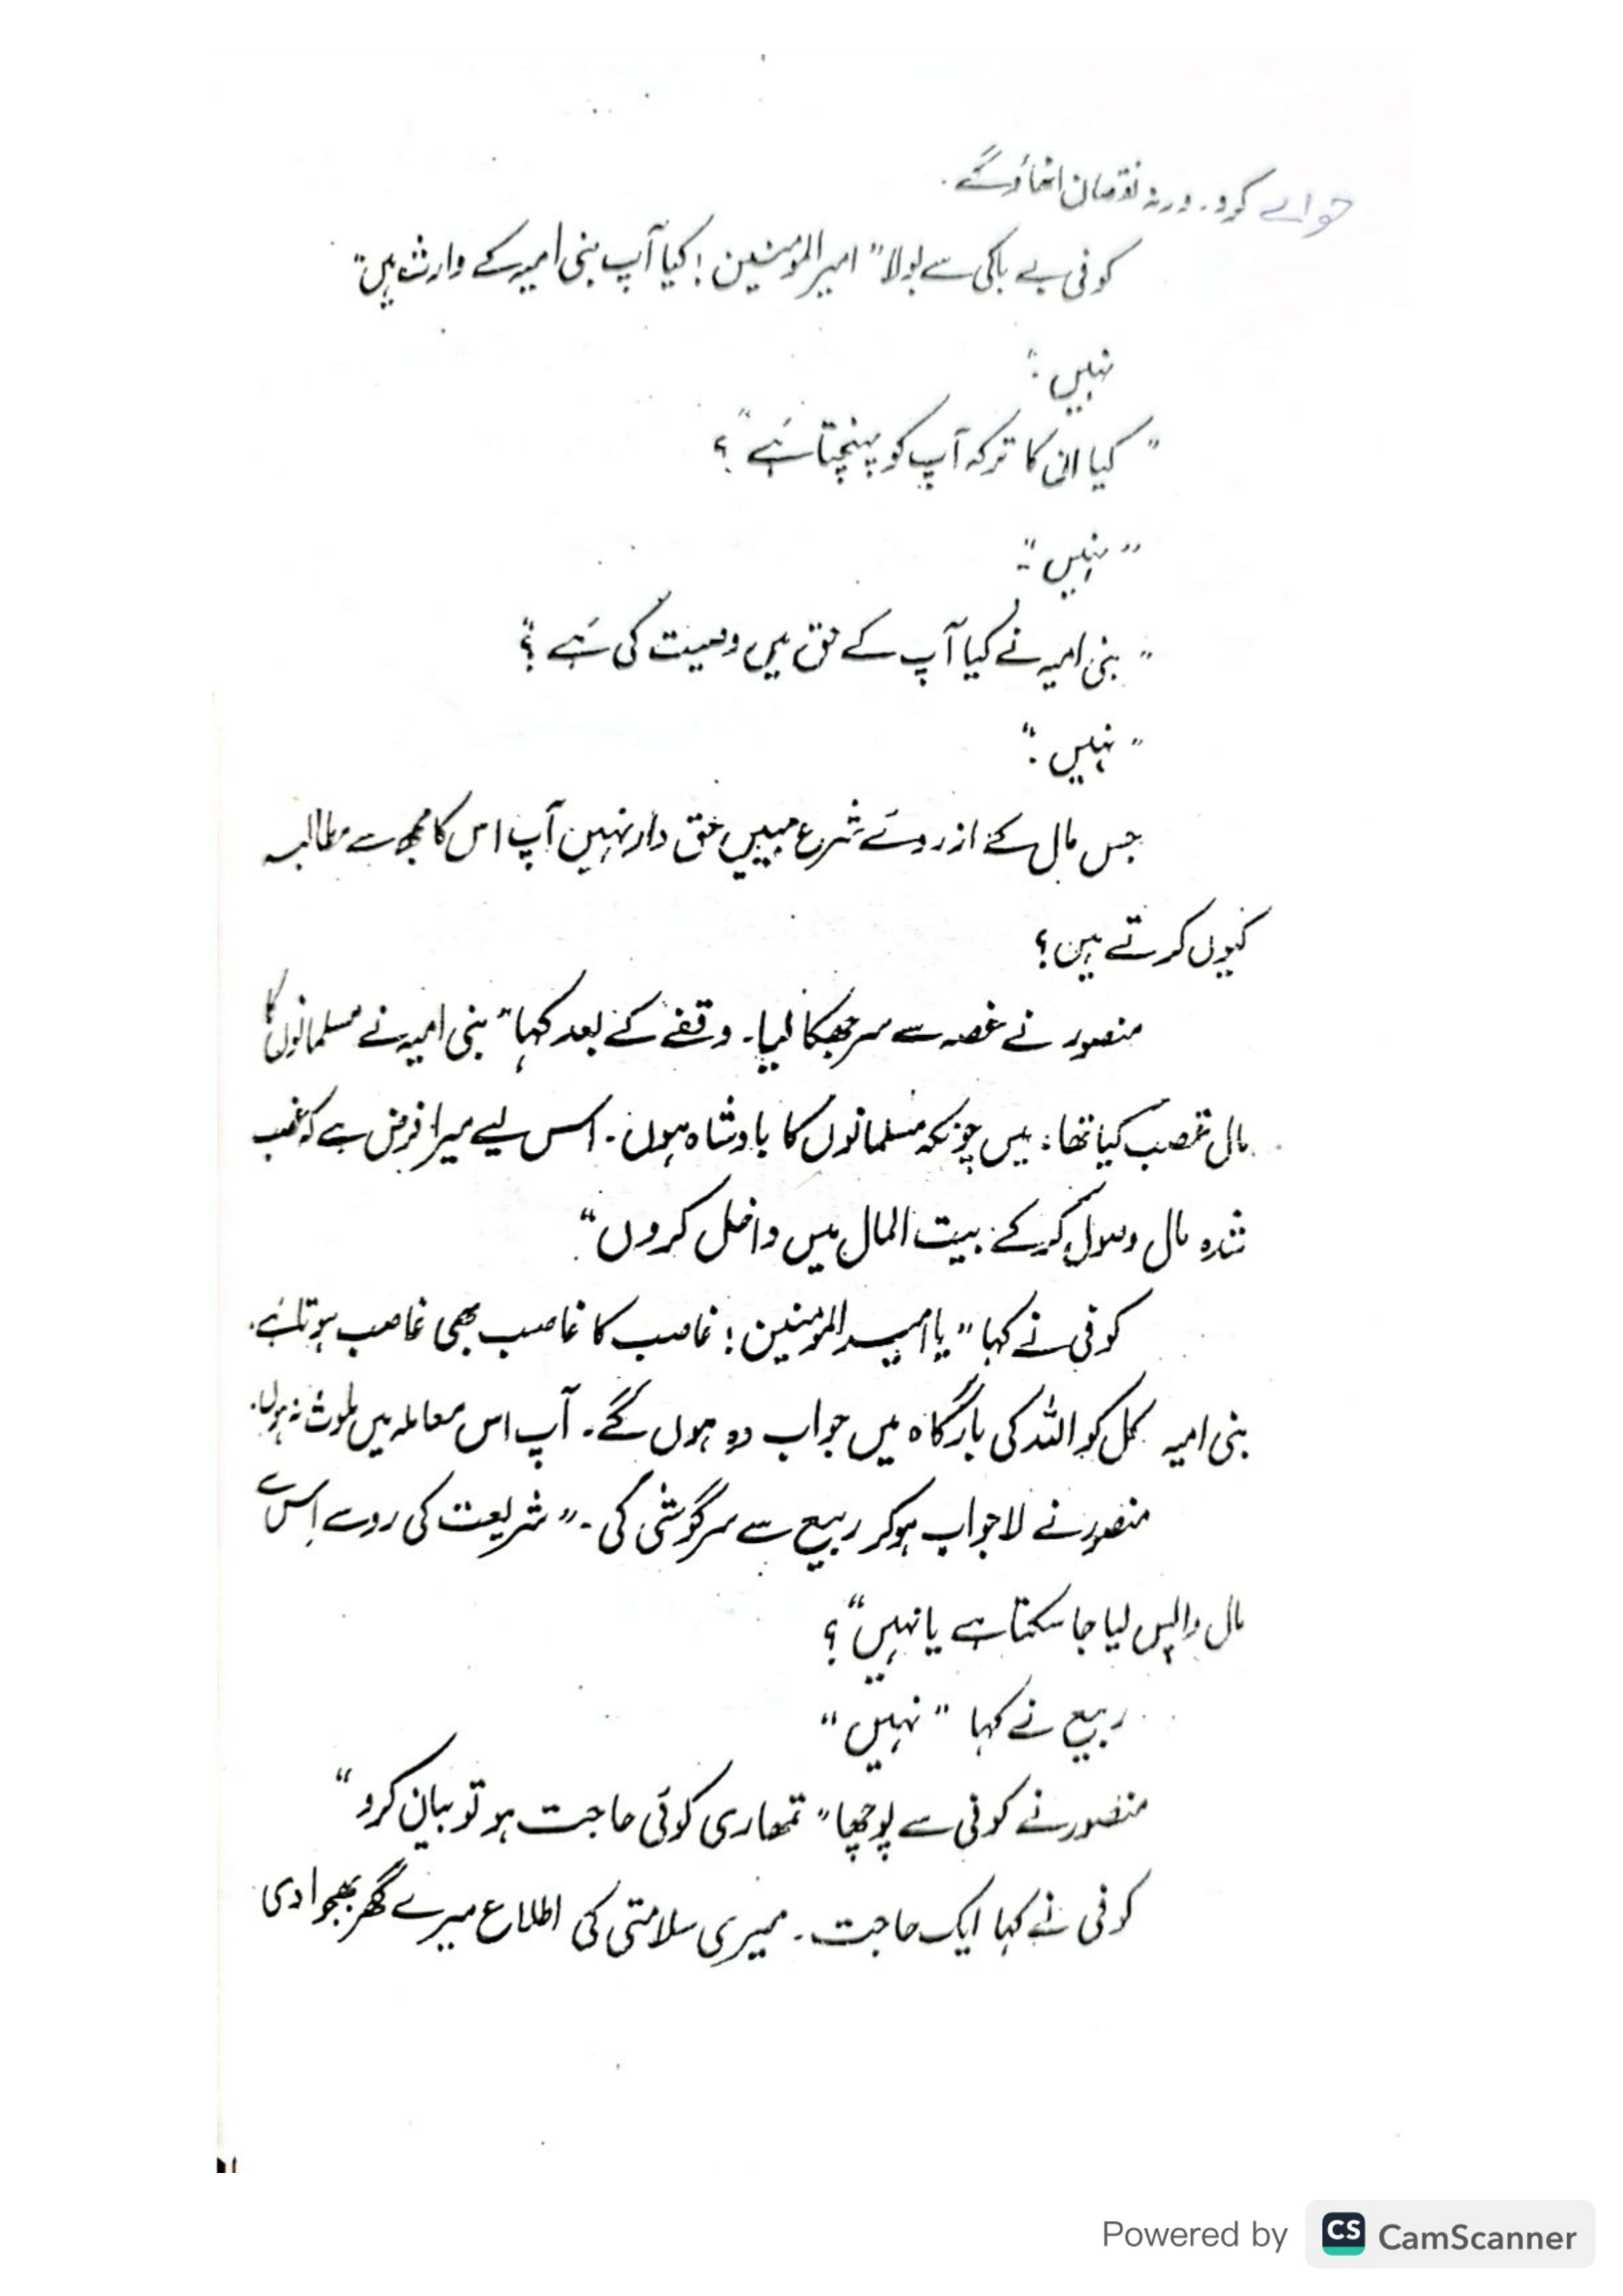 حوالے کرو۔ ورنہ نقصان اٹھاؤ گے۔
کوفی بے باکی سے بولا " امیر المومنین ! کیا آپ بنی امیہ کے وارث ہیں"
نہیں :"
" کیا ان کا ترکہ آپ کو پہنچتا ہے " ؟
" نہیں "
" بنی امیہ نے کیا آپ کے حق میں وصیت کی ہے " ؟
" نہیں :"
جس مال کے از روئے شرع مبیں حق دار نہیں آپ اس کا مجھ سے مطالبہ
کیوں کرتے ہیں ؟
منصور نے غصہ سے سر جھکا لیا۔ وقفے کے بعد کہا " بنی امیہ نے مسلمانوں کا
مال غصب کیا تھا ، میں چونکہ مسلمانوں کا بادشاہ ہوں۔ اس لیے میرا فرض ہے کہ غصب
شدہ مال وصول کر کے بیت المال میں داخل کروں "
کوفی نے کہا " یا امیر المومنین ! غاصب کا غاصب بھی غاصب ہوتا ہے۔
بنی امیہ کل کو اللہ کی بارگاہ میں جواب دہ ہوں گے۔ آپ اس معاملہ میں ملوث نہ ہوں۔
منصور نے لاجواب ہو کر ربیع سے سرگوشی کی۔ " شریعت کی رو سے اس سے
مال واپس لیا جا سکتا ہے یا نہیں " ؟
ربیع نے کہا " نہیں "
منصور نے کوفی سے پوچھا " تمھاری کوئی حاجت ہو تو بیان کرو "
کوفی نے کہا ایک حاجت۔ میری سلامتی کی اطلاع میرے گھر بھجوا دی
Powered by CS CamScanner